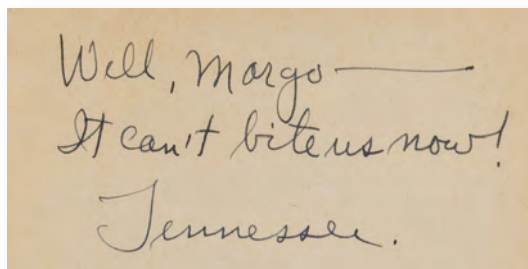 Well, Margo —
It can't bite us now!
Tennessee.